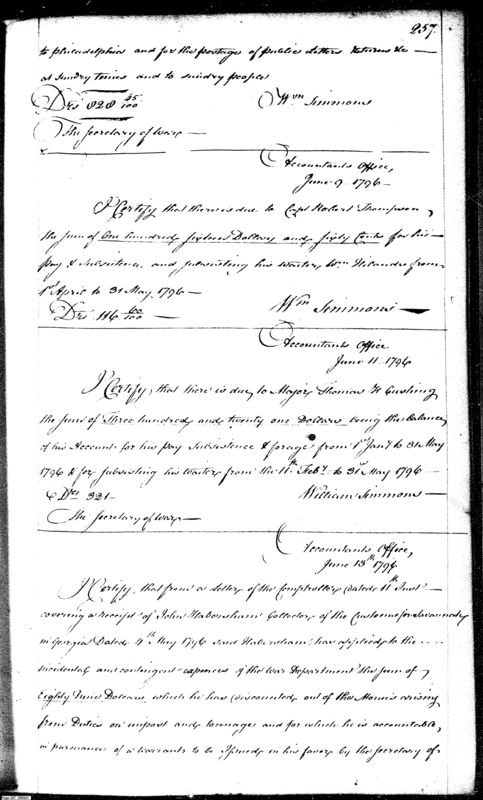 257.
to Philadelphia and for the postage of public Letters returns &c
at sundry times and to sundry people
Drs 828 45/100 Wm Simmons
The Secretary of War
Accountants Office,
June 9 1796
I Certify, that there is due to Capt Robert Thompson,
the sum of One hundred, sixteen Dollars and sixty Cents for his
pay & subsistence, and subsisting his waiter Wm from
1st April to 31 May, 1796
Drs 116 60/100 Wm Simmons
Accountants Office
June 11 1796
I Certify, that there is due, to Major Thomas H Cushing
the sum of Three hundred and twenty one Dollars being the balance
of his Account for his pay Subsistence & forage from 1st Jany to 31 May
1796 & for subsisting his waiter from the 11th Feby to 31st May 1796
Drs 321 William Simmons
The Secretary of War
Accountants Office,
June 13th 1796
I Certify, that from a Letter of the Comptroller dated 11th Inst
covering a receipt of John Habersham Collector of the Customs for Savannah
in Georgia Dated 4th May 1796 said Habersham, has applied to the
incidental and contingent expences of the War Department the sum of
Eighty Dollars which he has discounted out of the Monies arising
from Duties on impost and tonnage and for which he is accountable,
in pursuance of a warrant to be Issued in his favor by the Secretary of